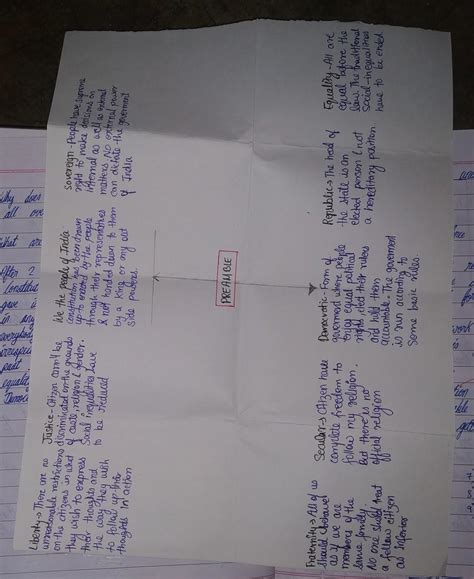 Liberty → There are no
unreasonable restrictions
on the citizens in what
they wish to express
their thoughts and
the way they wish
to follow up their
thoughts in action
Justice - Citizen can't be
discriminated on the grounds
of caste, religion & gender.
Social inequalities have
to be reduced
We the people of India
constitution has been drawn
up to enacted by the people
through their representatives
& not handed down to them
by a king or any out
side powers.
Sovereign - People have supreme
right to make decisions on
internal as well as external
matters. No external power
can dictate the government
of India
PREAMBLE
Fraternity → All of us
should behave
as if we are
members of the
same family.
No one should treat
a fellow citizen
as inferior
Secular → Citizen have
complete freedom to
follow any religion.
But there is no
official religion
Democratic - Form of
government where people
enjoy equal political
rights, elect their rulers
and hold them
accountable. The government
is run according to
some basic rules.
Republic → The head of
the state is an
elected person & not
a hereditary position
Equality - All are
equal before the
law. The traditional
social inequalities
have to be ended
does
all over
What are
After 2
gave
in any
past